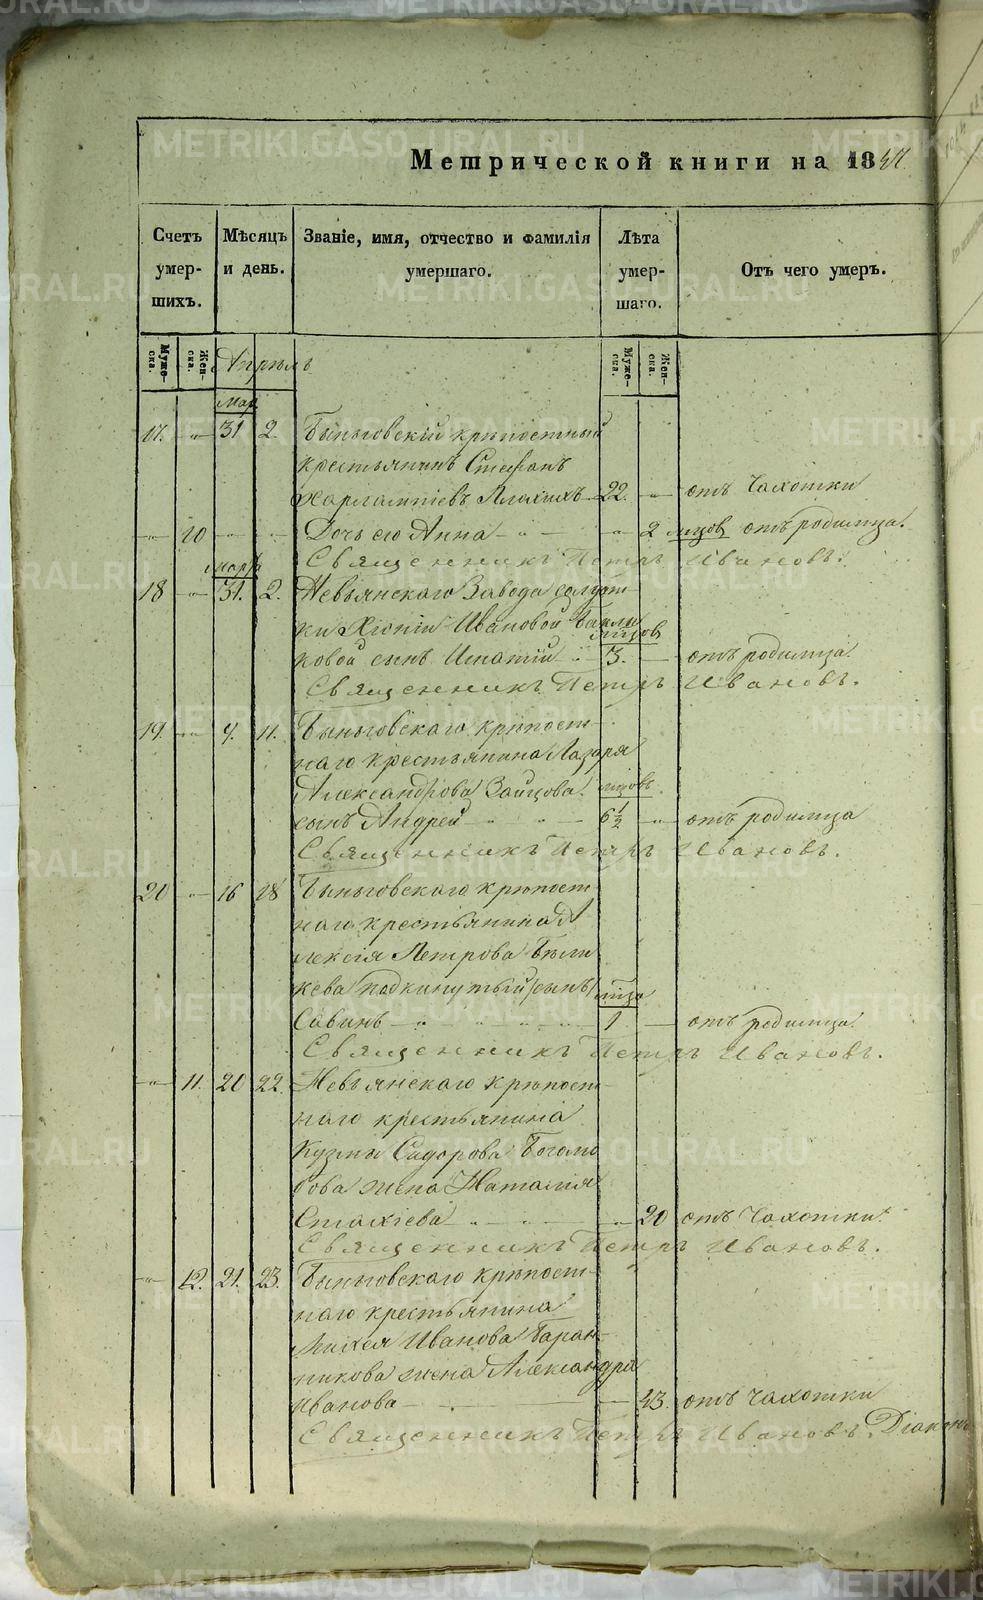 Метрической книги на 1847
Счетъ умер-шихъ. Мѣсяцъ и день. Званіе, имя, отчество и фамилія умершаго. Лѣта умер-шаго. Отъ чего умеръ.
Муже-ска. Жен-ска. Апрѣль Муже-ска. Жен-ска.
Мар
17. " 31 2. Быньговскій крѣпостный
крестьянинъ Стефанъ
Харлампіевъ Плохихъ 22. " отъ Чахотки
" 10 " " Дочь его Анна " " 2 мцов отъ родимца.
Священникъ Петръ Ивановъ.
Марта
18 " 31. 2. Невьянскаго Завода солдат-
ки Хіоніи Ивановой
мцов
ковой сынъ Игнатій " 3. — отъ родимца.
Священникъ Петръ Ивановъ.
19. " 9. 11. Быньговскаго крѣпост-
наго крестьянина Лазаря
Александрова Зайцова. мцовъ.
сынъ Андрей " " " 6 1/2 " отъ родимца
Священникъ Петръ Ивановъ.
20 " 16 18 Быньговскаго крѣпост
наго крестьянина А
лексія Петрова Бѣли
кова подкинутый (сынъ) мца
Савинъ — " " " " 1 — отъ родимца.
Священникъ Петръ Ивановъ.
" 11. 20 22. Невьянскаго крѣпост-
наго крестьянина
Кузмы Сидорова Боголю
бова жена Наталія
Стахіева " " " " 20 отъ Чахотки.
Священникъ Петръ Ивановъ.
" 12. 21. 23. Быньговскаго крѣпост-
наго крестьянина
Михея Иванова Баран-
никова жена Александра
Иванова — — 43. отъ Чахотки
Священникъ Петръ Ивановъ. Діаконъ
METRIKI.GASO-URAL.RU